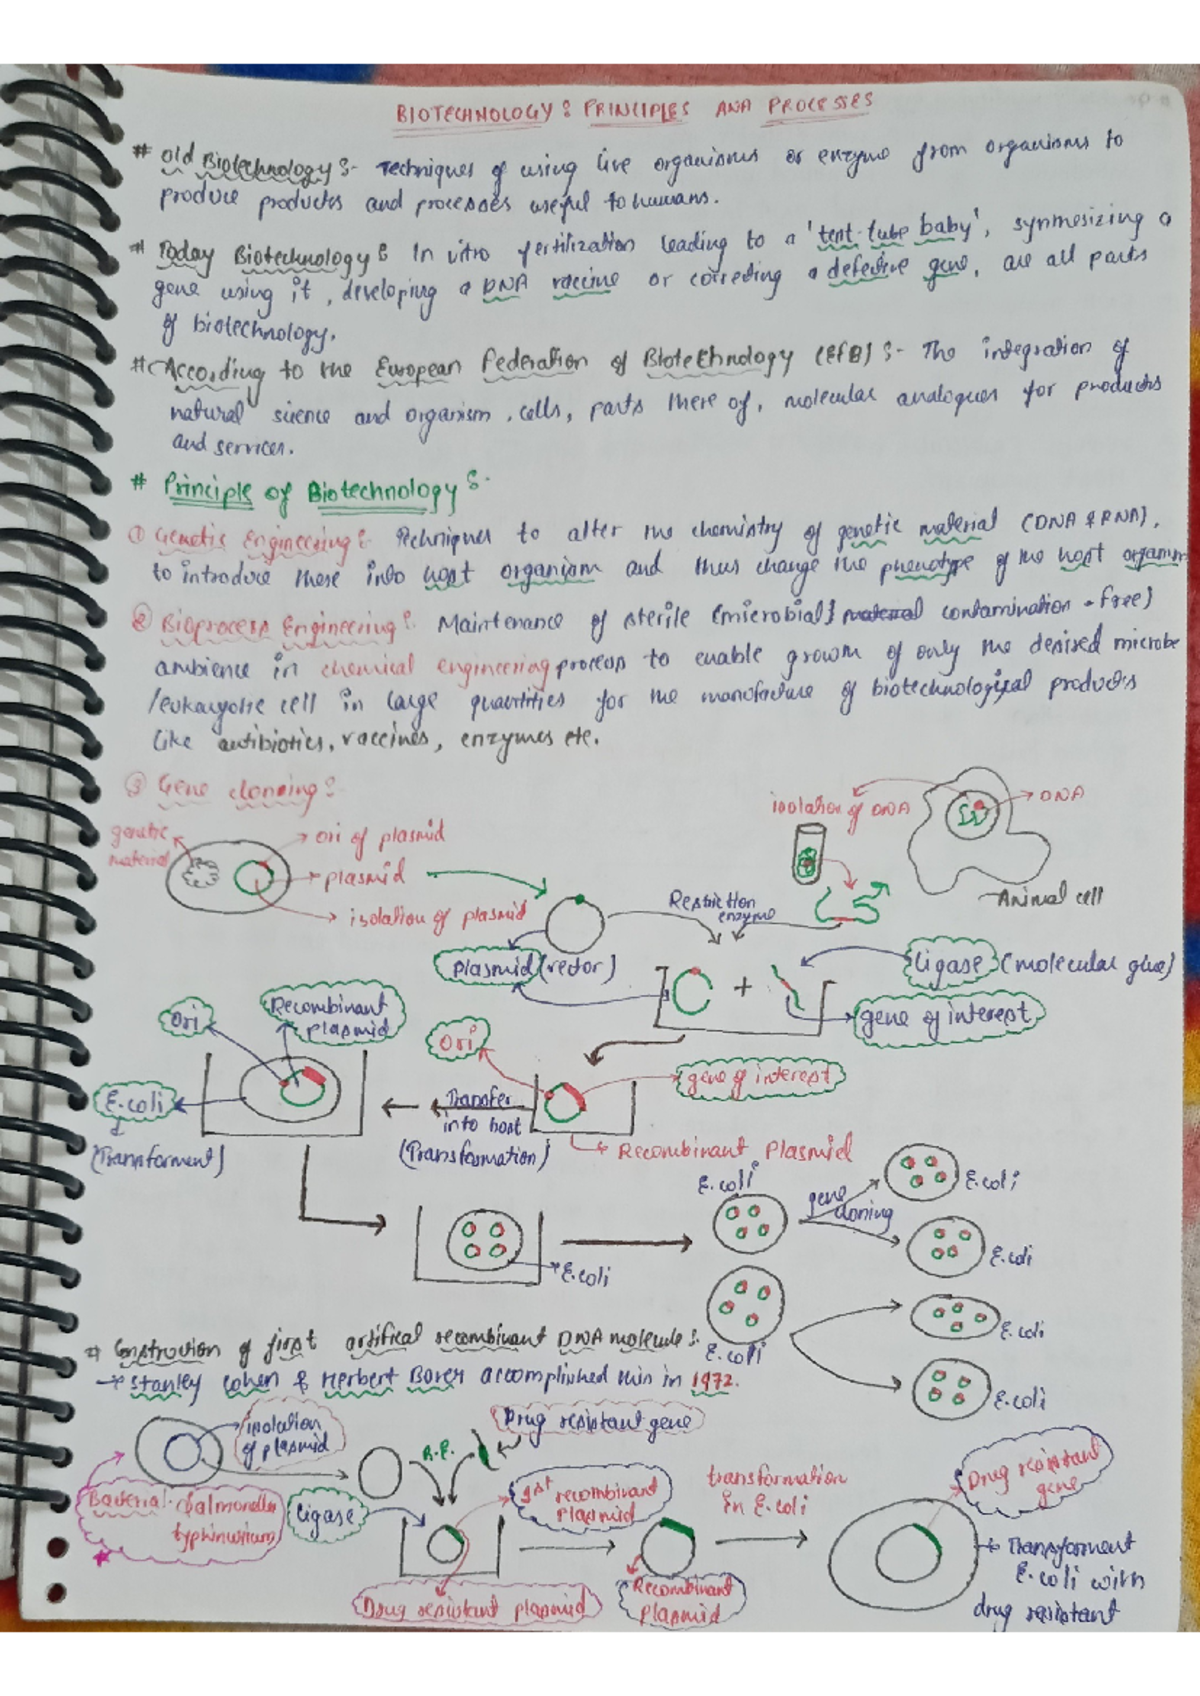 BIOTECHNOLOGY : PRINCIPLES ANA PROCESSES
# Old Biotechnology :- Techniques of using live organisms or enzyme from organisms to
produce products and processes useful to humans.
# Today Biotechnology : In vitro fertilization leading to a 'test-tube baby', synthesizing a
gene using it, developing a DNA vaccine or correcting a defective gene, are all parts
of biotechnology.
# According to the European Federation of Biotechnology (EFB) :- The integration of
natural science and organism, cells, parts there of, molecular analogues for products
and services.
# Principle of Biotechnology :-
① Genetic Engineering : Techniques to alter the chemistry of genetic material (DNA & RNA),
to introduce these into host organism and thus change the phenotype of the host organism
② Bioprocess Engineering :- Maintenance of sterile (microbial) material contamination - free)
ambience in chemical engineering process to enable growth of only the desired microbe
/eukaryotic cell in large quantities for the manufacture of biotechnological products
like antibiotics, vaccines, enzymes etc.
③ Gene cloning :-
genetic material
ori of plasmid
plasmid
isolation of plasmid
isolation of DNA
DNA
Animal cell
Restriction
enzyme
Plasmid (vector)
+
Ligase (molecular glue)
gene of interest
Ori
Recombinant
plasmid
Ori
gene of interest
E.coli
(Transforment)
Transfer
into host
(Transformation)
Recombinant Plasmid
E.coli
gene
cloning
E.coli
E.coli
E.coli
E.coli
E.coli
E.coli
# Construction of first artifical recombinant DNA molecule :-
→ Stanley Cohen & Herbert Boyer accomplished this in 1972.
isolation
of plasmid
Bacteria :- Salmonella
typhimurium
R.E.
Drug resistant gene
Ligase
1st recombinant
plasmid
Drug resistant plasmid
Recombinant
plasmid
transformation
in E.coli
Drug resistant
gene
Transforment
E.coli with
drug resistant